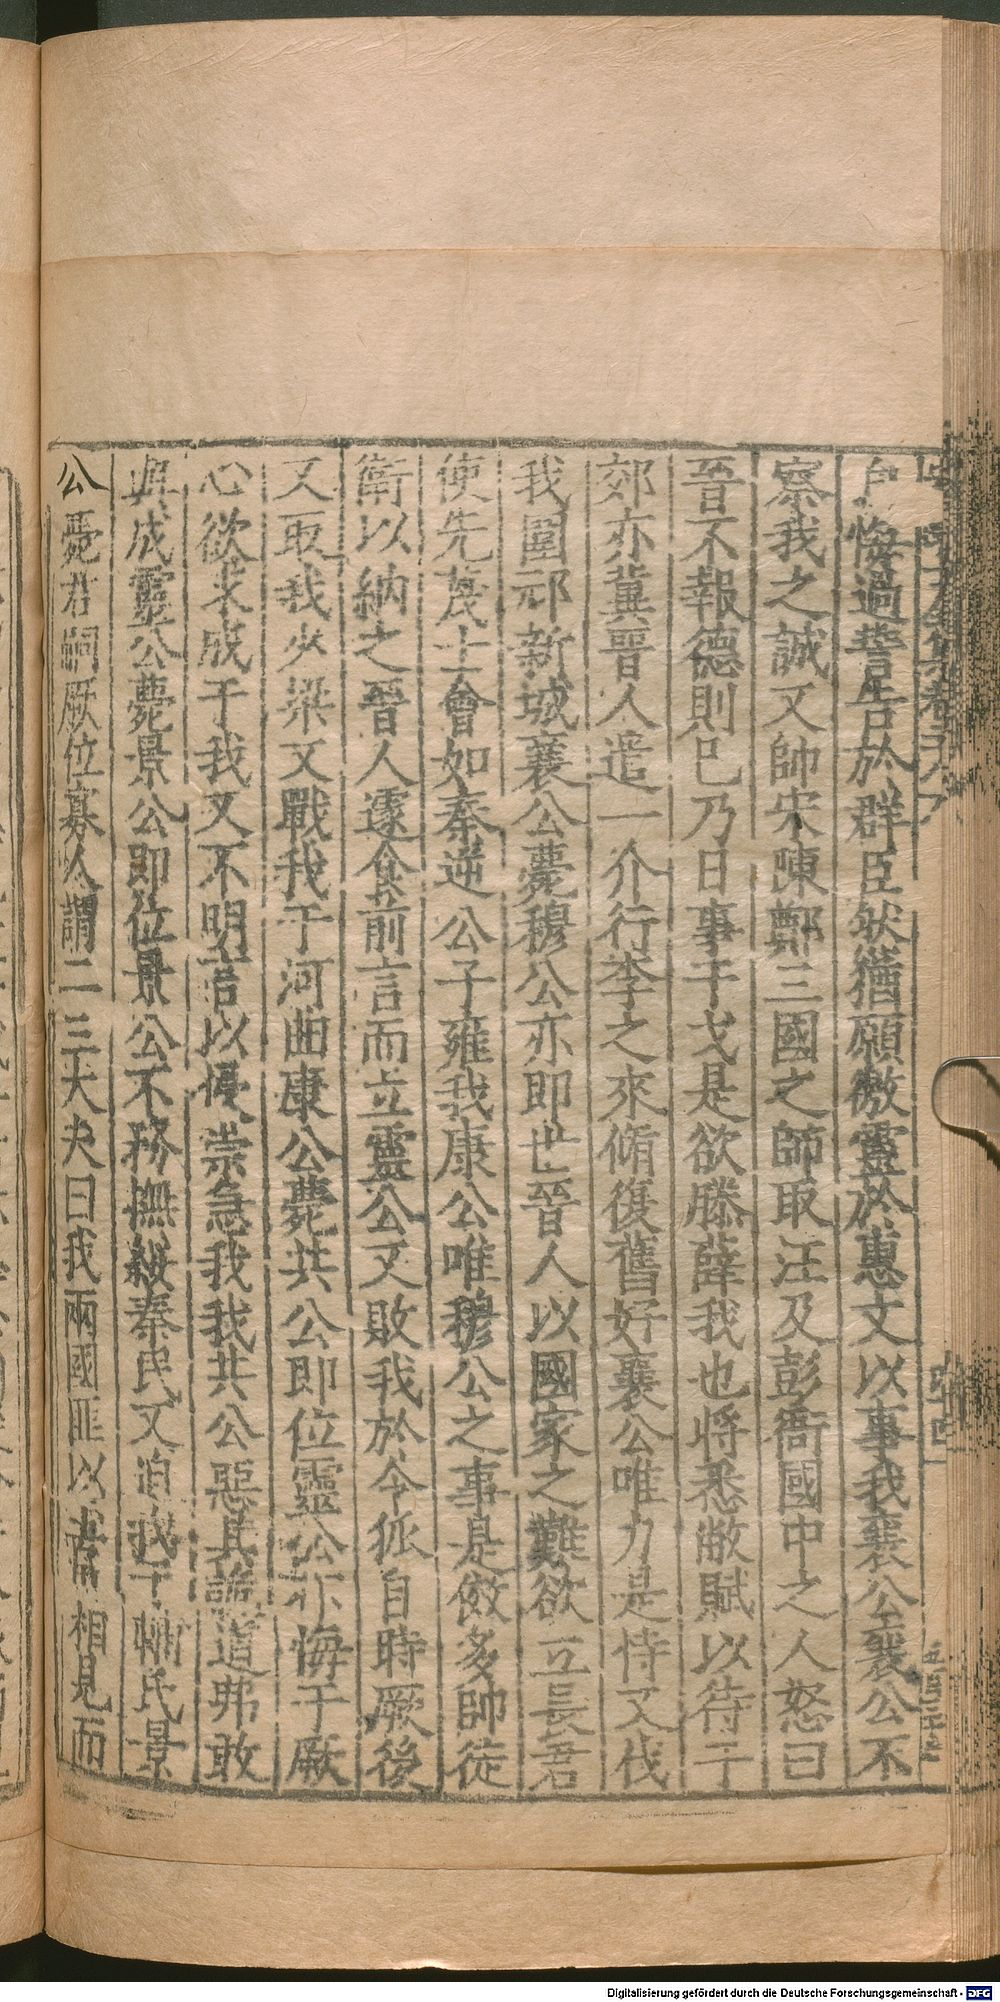 自悔過誓告於群臣然猶願徼靈於惠文以事我襄公襄公不
察我之誠又帥宋陳鄭三國之師取汪及彭衙國中之人怒曰
晉不報德則已乃日事干戈是欲滕薛我也將悉敝賦以待于
郊亦冀晉人遣一介行李之來脩復舊好襄公唯力是恃又伐
我圍邧新城襄公薨穆公亦即世晉人以國家之難欲立長君
使先蔑士會如秦逆公子雍我康公唯穆公之事是傚多帥徒
衛以納之晉人遽弃前言而立靈公又敗我於令狐自時厥後
又取我少梁又戰我于河曲康公薨共公即位靈公不悔于厥
心欲求成于我又不明言以侵崇急我我共公惡其譎道弗敢
與成靈公薨景公即位景公不務撫綏秦民又洎我于輔氏景
公薨君嗣厥位寡人謂二三大夫曰我兩國匪以常相見而
Digitalisierung gefördert durch die Deutsche Forschungsgemeinschaft - DFG